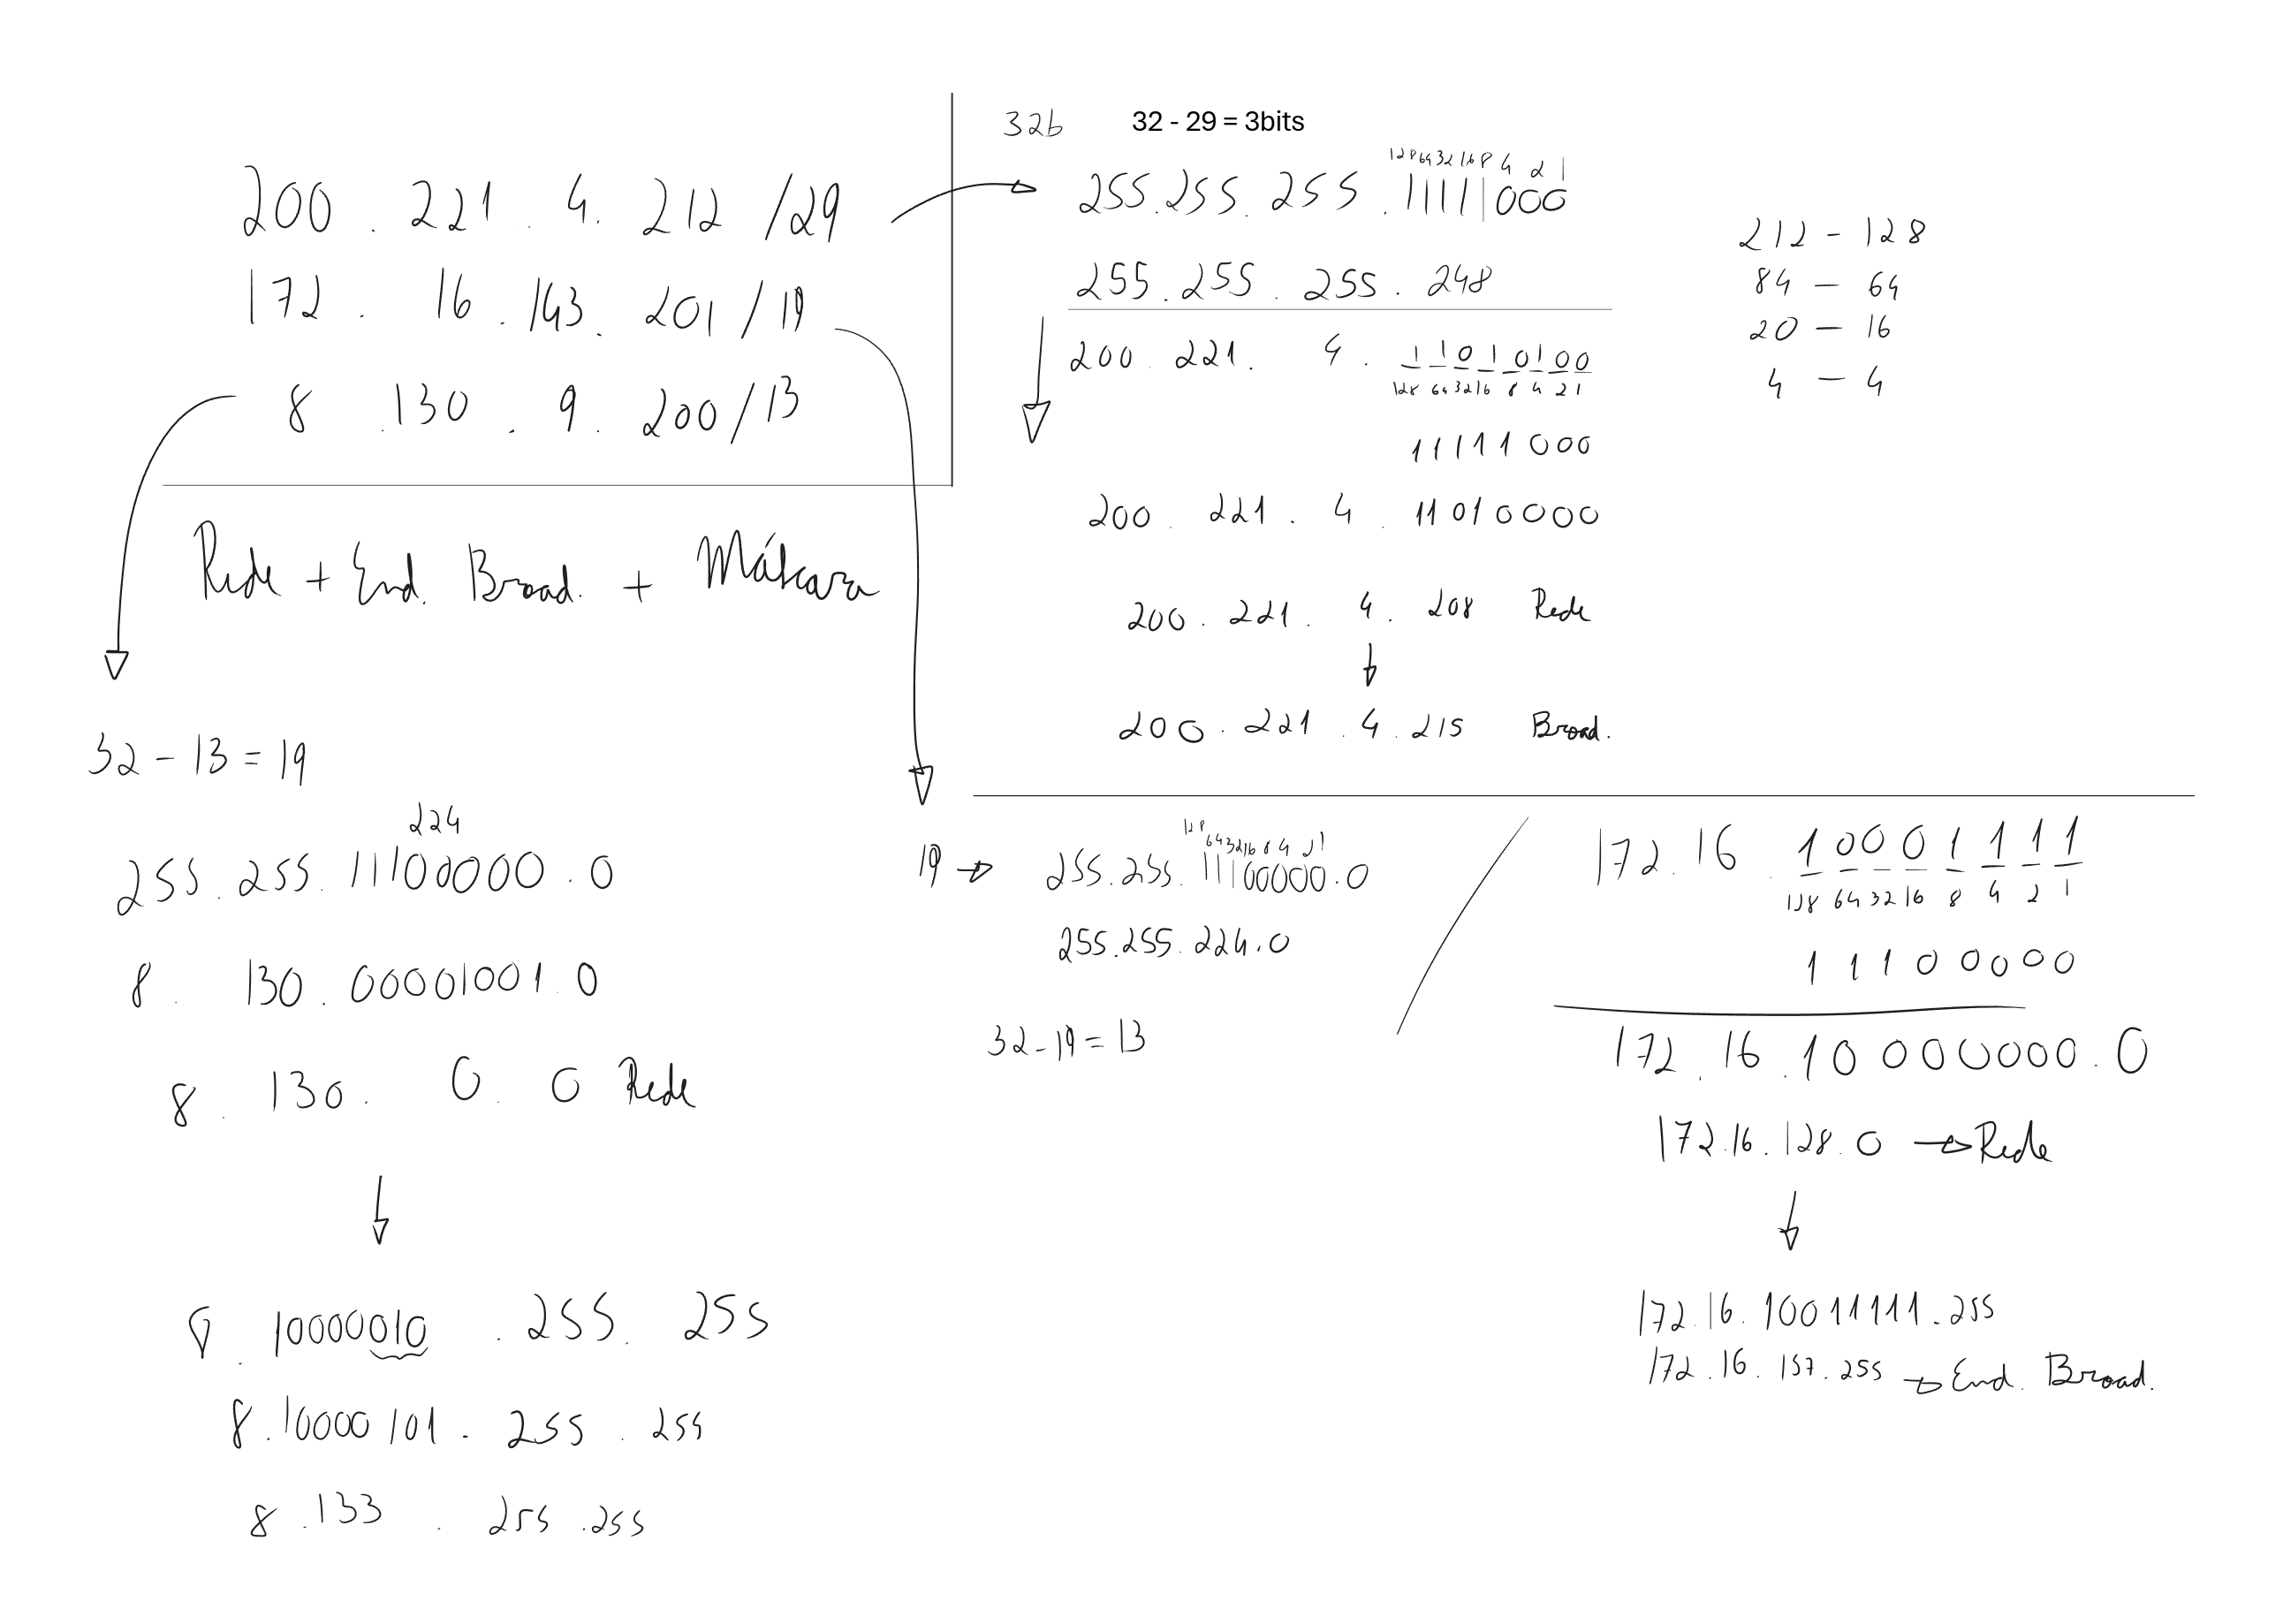 200 . 221 . 4 . 212 /29
172 . 16 . 143 . 201 / 19
8 . 130 . 9 . 200 / 13
Rede + End. Broad. + Máscara
32b 32 - 29 = 3bits
128 64 32 16 8 4 2 1
255.255.255.11111000
255.255.255.248
200.221.4.11010100
128 64 32 16 8 4 2 1
11111000
200.221.4.11010000
200.221.4.208 Rede
200.221.4.215 Broad.
212 - 128
84 - 64
20 - 16
4 - 4
32 - 13 = 19
224
255.255.11100000.0
8.130.00001001.0
8.130.0.0 Rede
8.10000010.255.255
8.10000101.255.255
8.133.255.255
128 64 32 16 8 4 2 1
19 → 255.255.11100000.0
255.255.224.0
32 - 19 = 13
172.16.10001111
128 64 32 16 8 4 2 1
11100000
172.16.10000000.0
172.16.128.0 → Rede
172.16.10011111.255
172.16.157.255 → End. Broad.